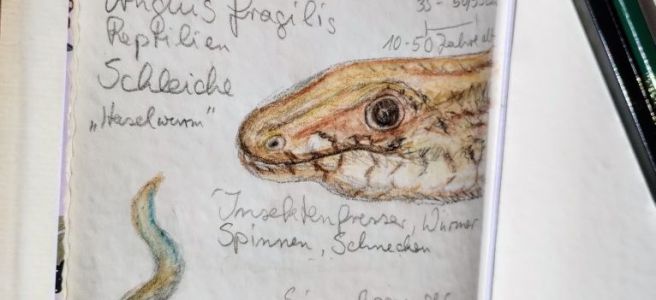 Anguis fragilis
Reptilien
Schleiche
„Haselwurm"
10-50 Jahre alt
Insektenfresser, Würmer
Spinnen, Schnecken